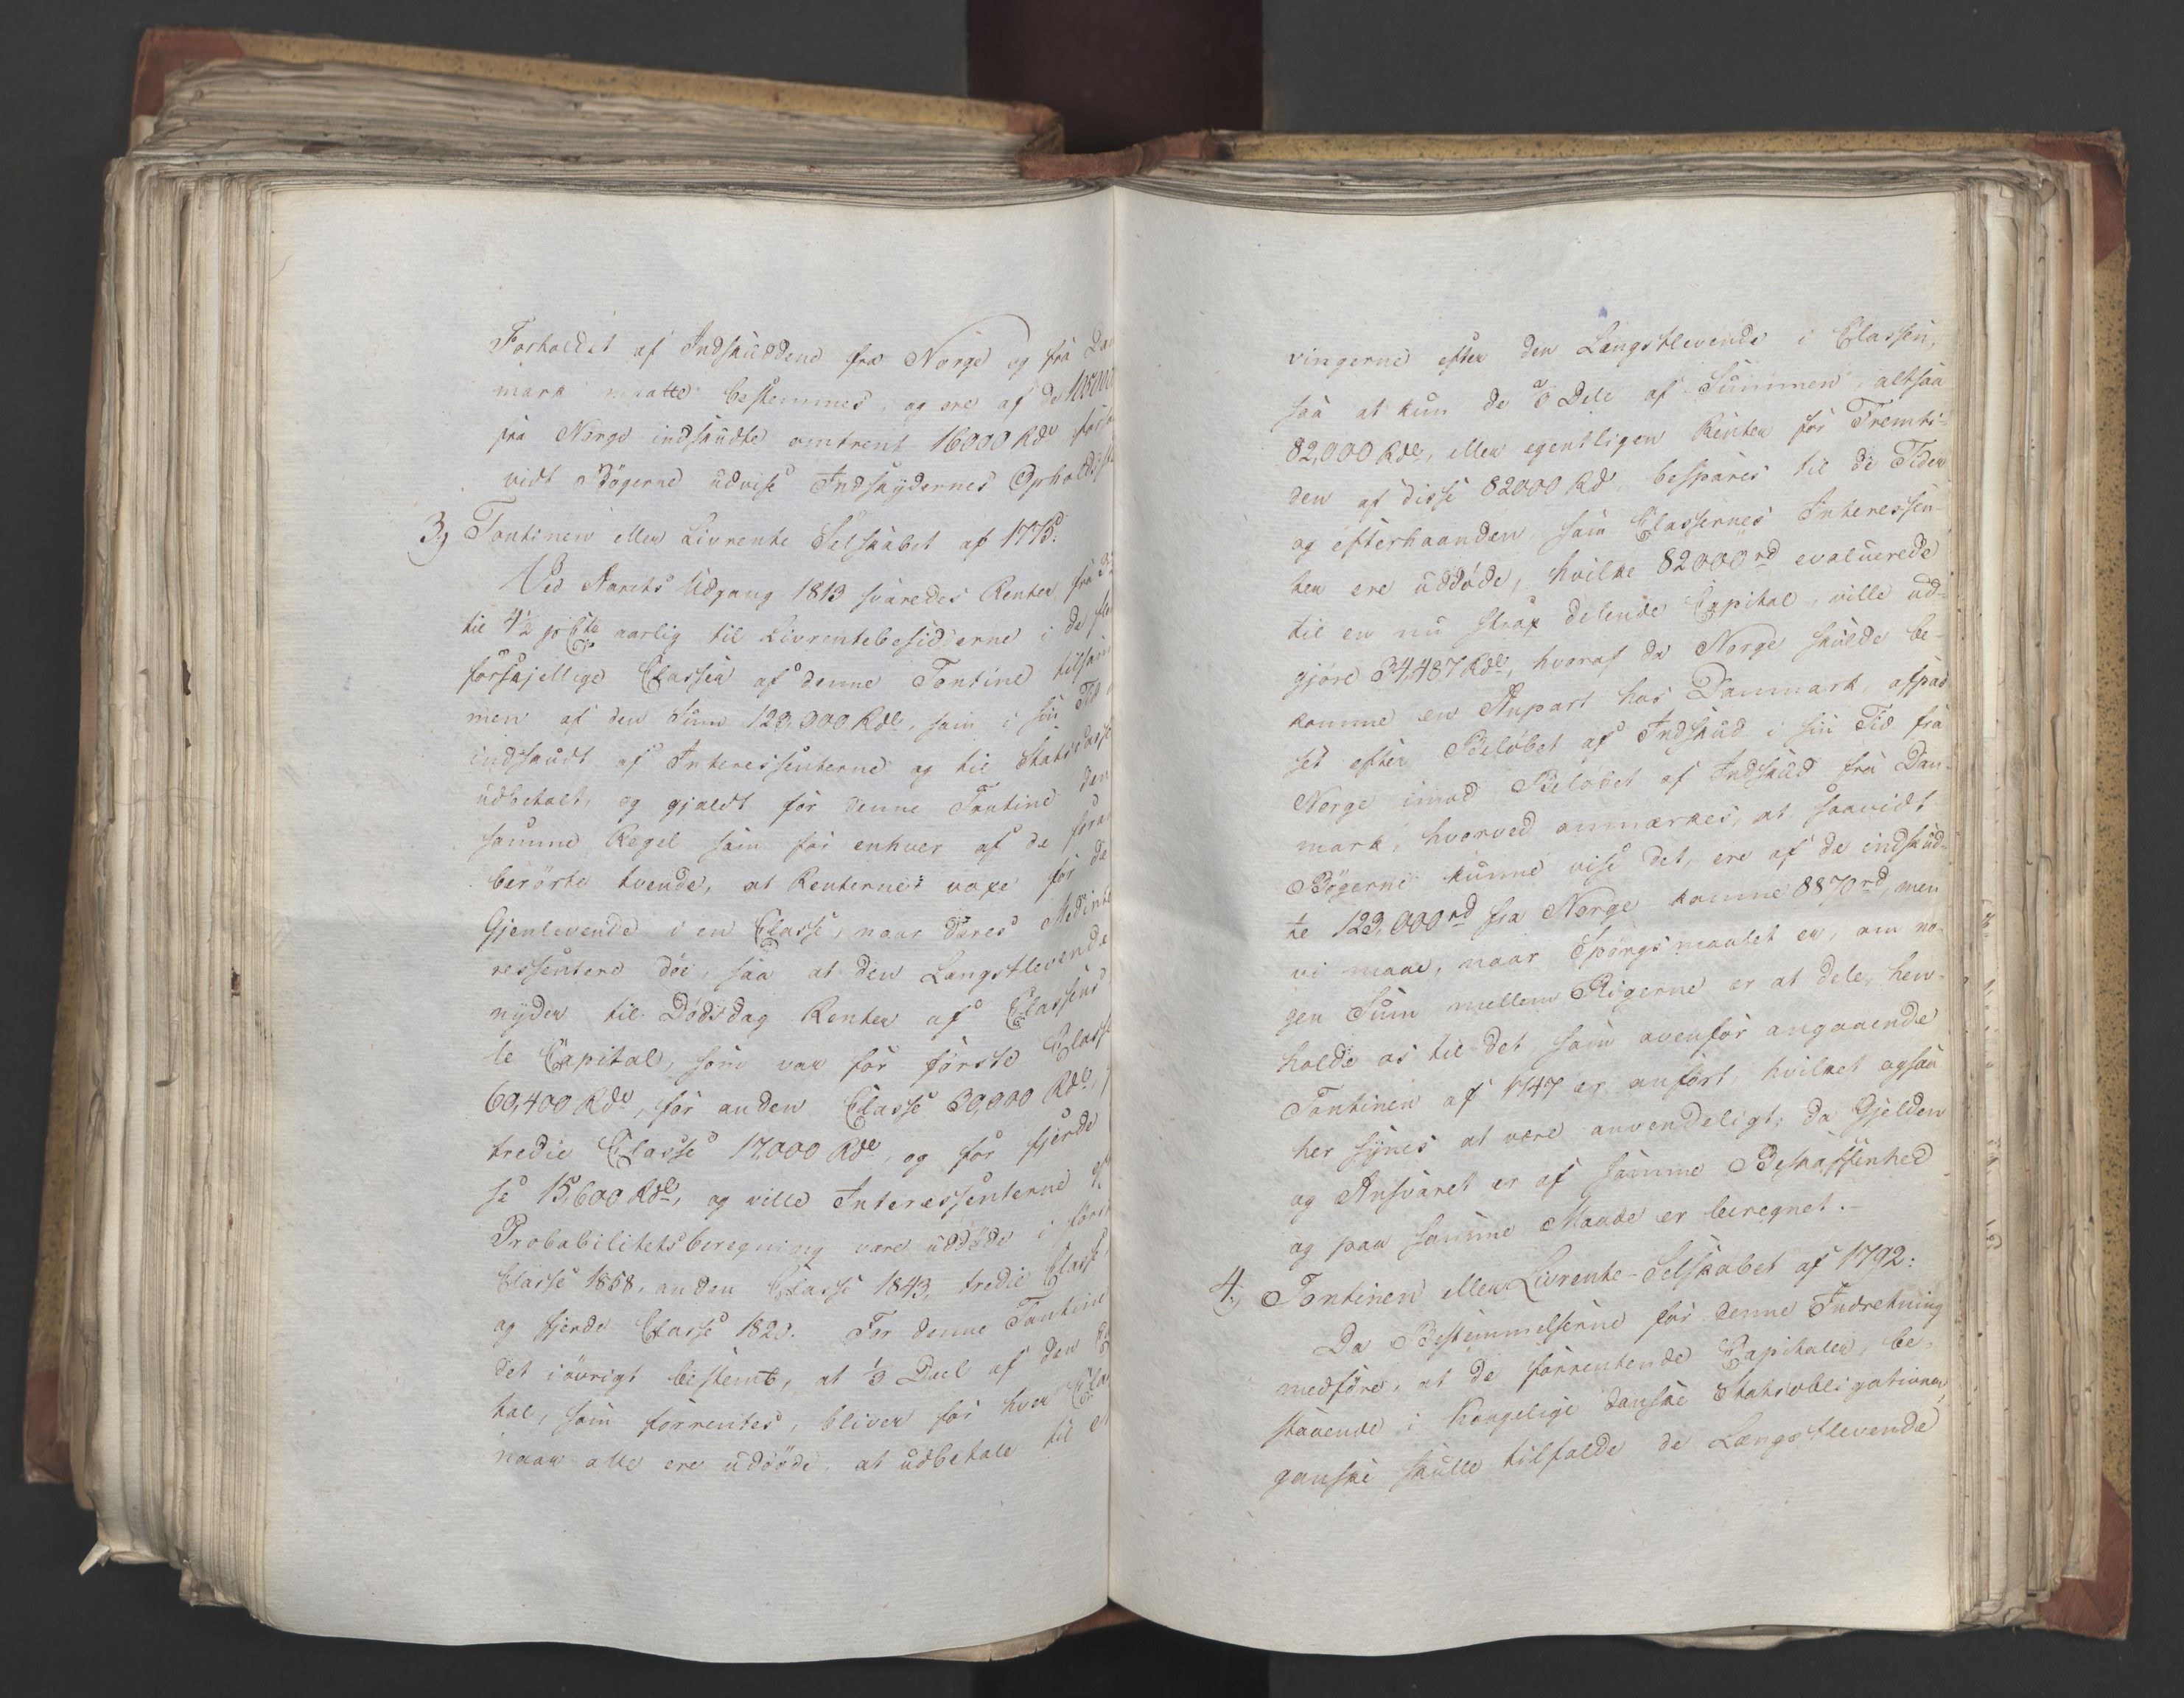 Forholdet af Indskuddene fra Norge og fra Dan
mark maatte bestemmes, og ere af de
fra Norge indskudte omtrent 16000 Rdr forsaa
vidt Bögerne udvise Indskydernes Opholdsste
3.) Tontinen eller Livrente Selskabet af 1775:
Ved Aarets Udgang 1813 svaredes Renter fra 3½
til 4½ pr Cto aarlig til Livrentebesidderne i de fi
forskjellige Classer af denne Tontine tilsam
men af den Sum 123,000 Rdl, som i sin Tid
indskudt af Interessenterne og til Statscasse
udbetalt, og gjaldt for denne Tontine den
samme Regel som for enhver af de foran
berörte tvende, at Renterne voxe for de
Gjenlevende i en Classe, naar deres Medinte
ressentere döe, saa at den Længstlevende
nyder til Dödsdag Renter af Classens
le Capital, som var for förste Classe
60,400 Rdr, for anden Classe 30,000 Rdr,
tredie Classe 17,000 Rdr, og for fjerde
se 15,600 Rdr, og ville Interessenterne
Probabilitetsberegning være uddöde i först
Classe 1858, anden Classe 1843, tredie Classe
og fjerde Classe 1823. For denne Tontine
det iövrigt bestemt, at ⅓ Deel af den
tal, som forrentes, bliver for hver Cla
naar alle ere uddöde, at udbetale til
vingerne efter den Længstlevende i Classen,
saa at kun de ⅔ Dele af Summen, altsaa
82,000 Rdl, eller egentligen Renter for Fremti-
den af disse 82000 Rd, bespares til de Tider
og efterhaanden, som Classernes Interessen-
ter ere uddöde, hvilke 82000 rd evaluerede
til en nu strax delende Capital, ville ud-
gjöre 34,487 Rdl, hvoraf da Norge skulde be-
komme en Anpart hos Danmark, afpas
set efter Belöbet af Indskud i sin Tid fra
Norge imod Belöbet af Indskud fra Dan-
mark, hvorved anmærkes, at saavidt
Bögerne kunne vise det, ere af de indskud-
te 123,000 rd fra Norge komne 8870 rd, men
vi maae, naar Spörgsmaalet er, om no-
gen Sum mellem Rigerne er at dele, hen-
holde os til det som ovenfor angaaende
Tontinen af 1747 er anfört, hvilket ogsaa
her synes at være anvendeligt, da Gjelden
og Ansvaret er af samme Beskaffenhed
og paa samme Maade er beregnet.-
4.) Tontinen eller Livrente-Selskabet af 1792:
Da Bestemmelserne for denne Indretning
medföre, at de forrentende Capitaler, be-
staaende i Kongelige danske Statsobligationer,
ganske skulle tilfalde de Længstlevende